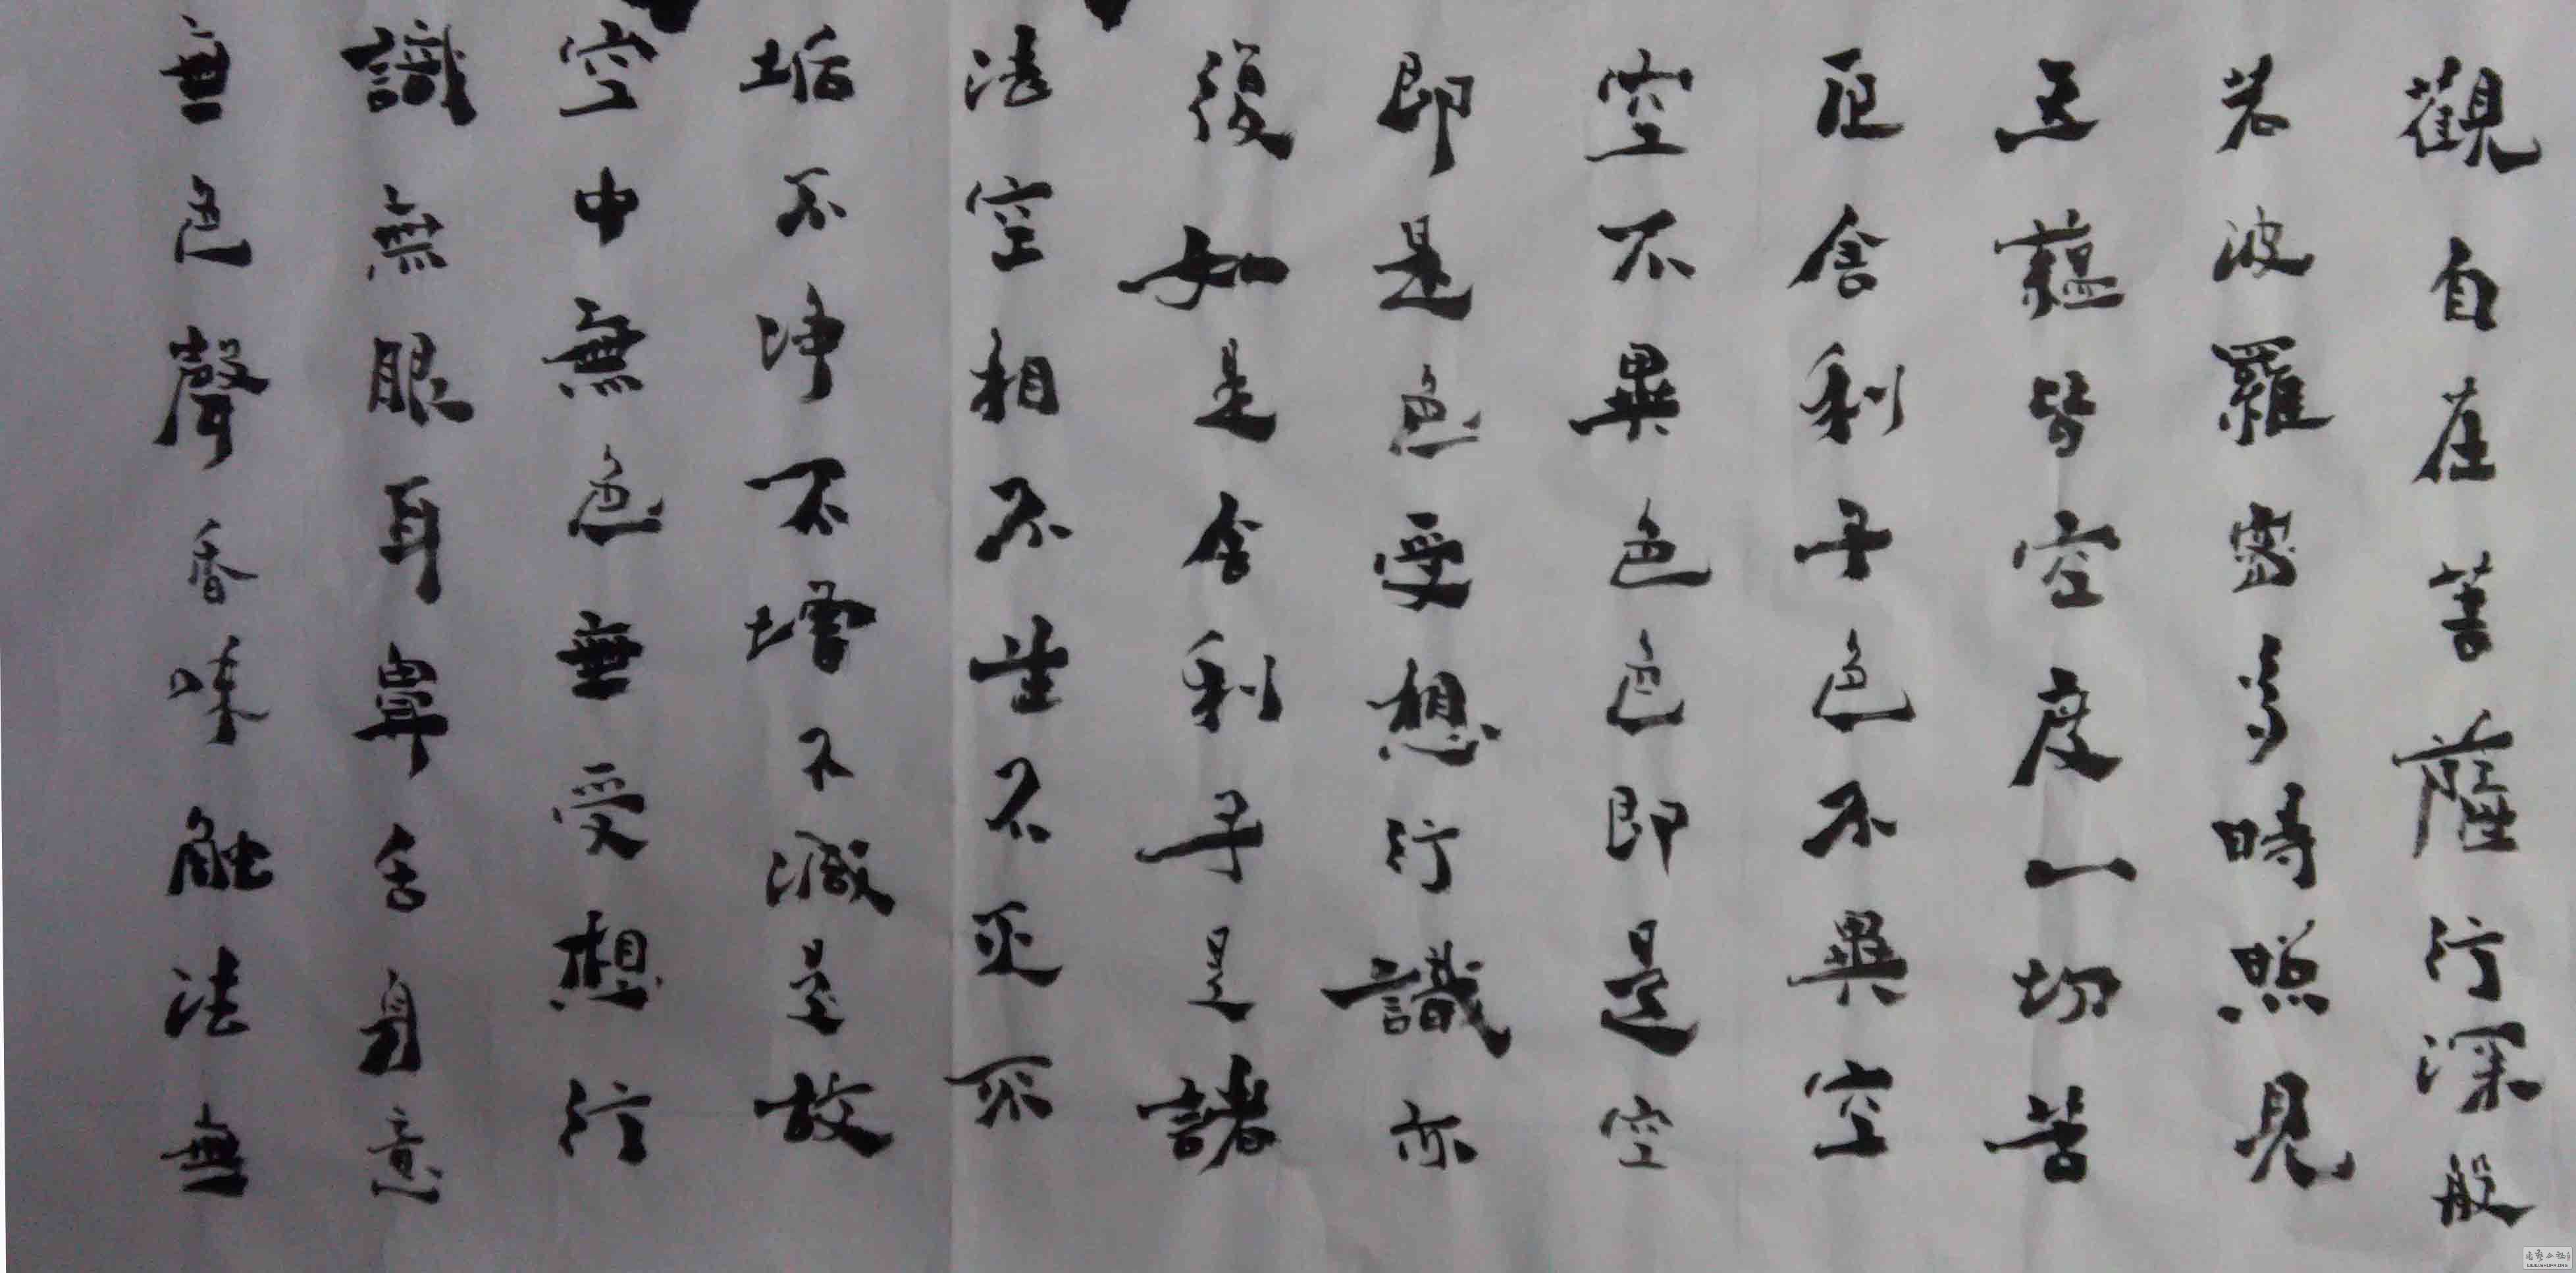 觀自在菩薩行深般
若波羅蜜多時照見
五蘊皆空度一切苦
厄舍利子色不異空
空不異色色即是空
即是色受想行識亦
復如是舍利子是諸
法空相不生不滅不
垢不净不增不減是故
空中無色無受想行
識無眼耳鼻舌身意
無色聲香味觸法無